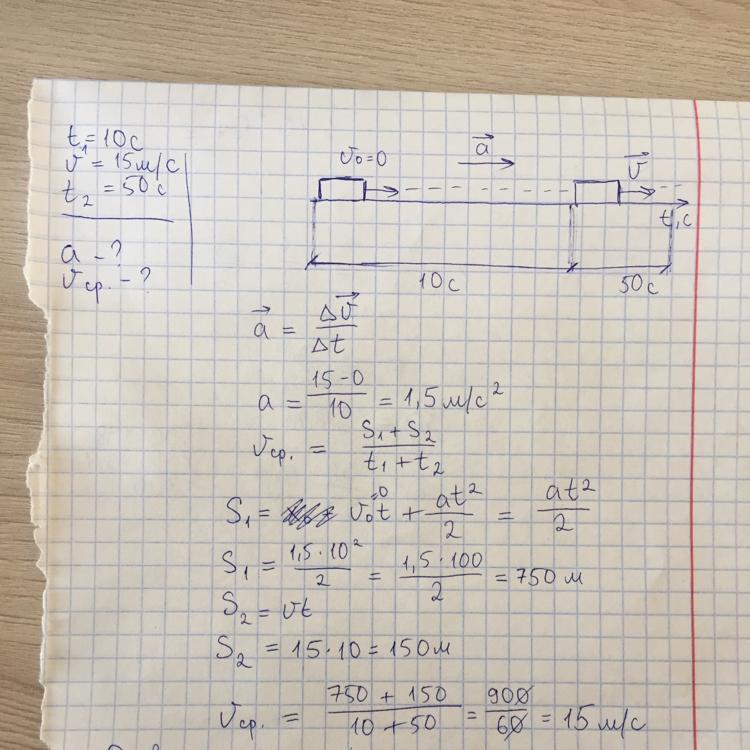 t₁ = 10 с
v = 15 м/с
t₂ = 50 с
a – ?
vср. – ?
v₀=0
a⃗
v⃗
t, с
10 с
50 с
a⃗ = Δv⃗/Δt
a = (15-0)/10 = 1,5 м/с²
vср. = (S₁ + S₂)/(t₁ + t₂)
S₁ = v₀t + at²/2 = at²/2
=0
S₁ = 1,5·10²/2 = 1,5·100/2 = 750 м
S₂ = vt
S₂ = 15·10 = 150 м
vср. = (750 + 150)/(10 + 50) = 900/60 = 15 м/с